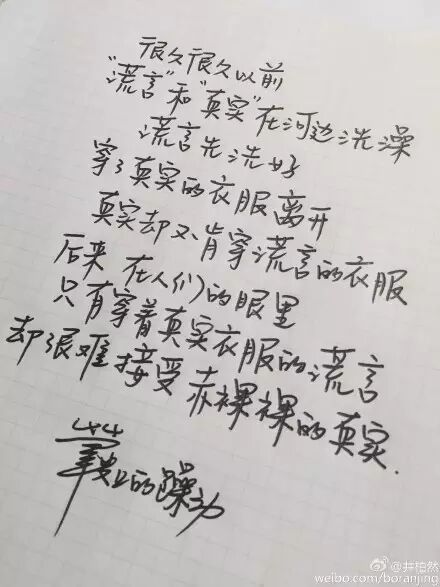 很久很久以前
"谎言"和"真实"在河边洗澡
谎言先洗好
穿了真实的衣服离开
真实却不肯穿谎言的衣服
后来 在人们的眼里
只有穿着真实衣服的谎言
却很难接受赤裸裸的真实.
的躁动
@井柏然
weibo.com/boranjing